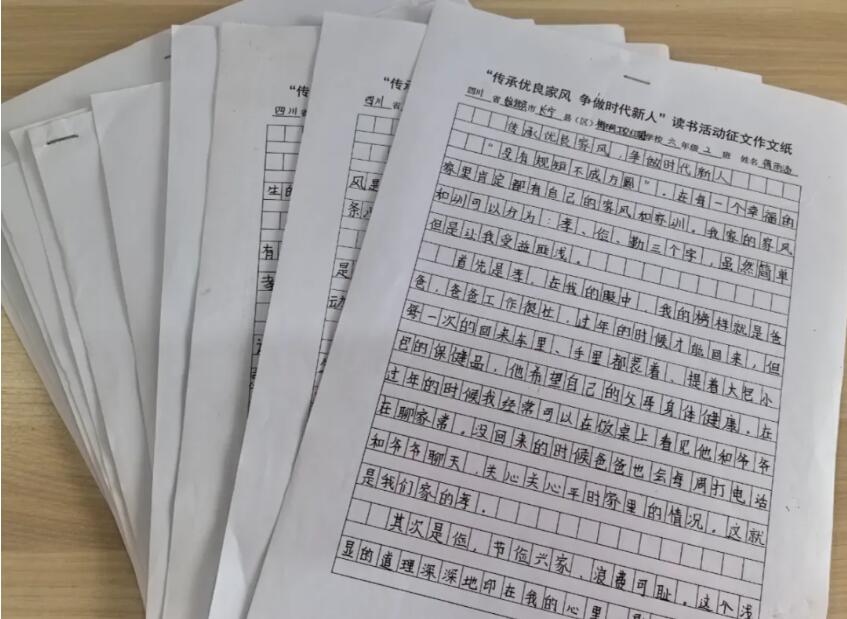 “传承优良家风 争做时代新人”读书活动征文作文纸
四川 省 市 长宁 县（区） 学校 六 年级 2 班 姓名
传承优良家风，争做时代新人
“没有规矩不成方圆”。在每一个幸福的
家里肯定都有自己的家风和家训。我家的家风
和训可以分为：孝、俭、勤三个字，虽然简单
但是让我受益匪浅。
首先是孝，在我的眼中，我的榜样就是爸
爸，爸爸工作很忙，过年的时候才能回来，但
每一次的回来车里、手里都装着、提着大包小
包的保健品，他希望自己的父母身体健康。在
过年的时候我经常可以在饭桌上看见他和爷爷
在聊家常。没回来的时候爸爸也会每周打电话
和爷爷聊天，关心关心平时家里的情况。这就
是我们家的孝。
其次是俭，节俭兴家、浪费可耻。这个浅
显的道理深深地印在我的心里
“传
四川 省
生的
有
孝
“传
四川 省
风是
条
是
动